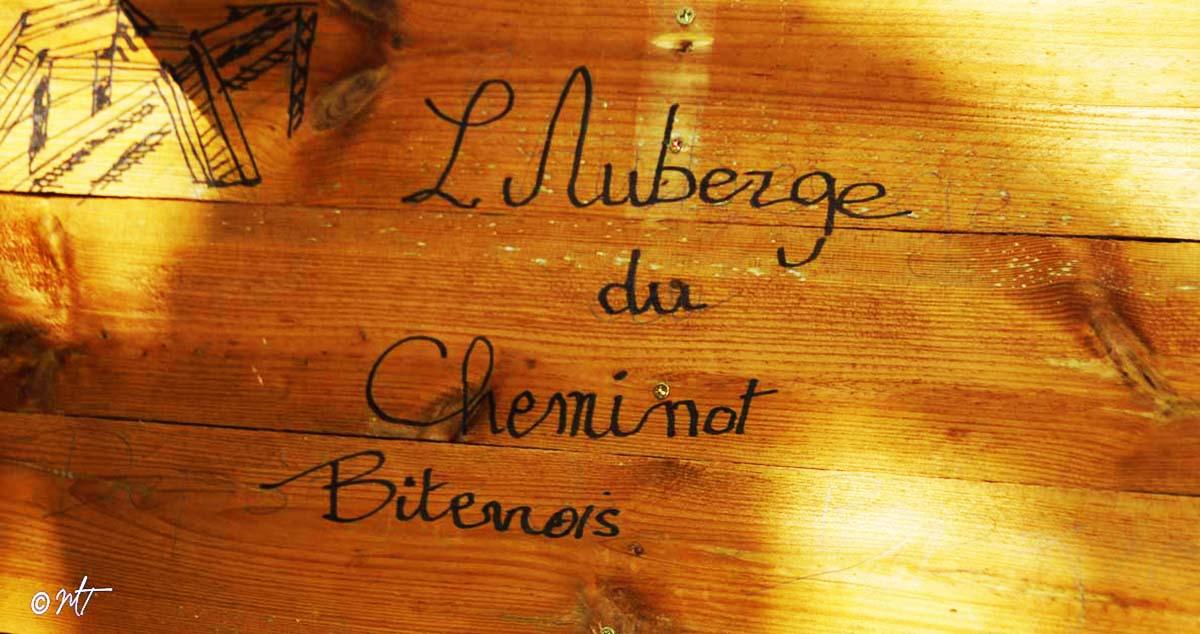 L'Auberge
du
Cheminot
Biterrois
© MT